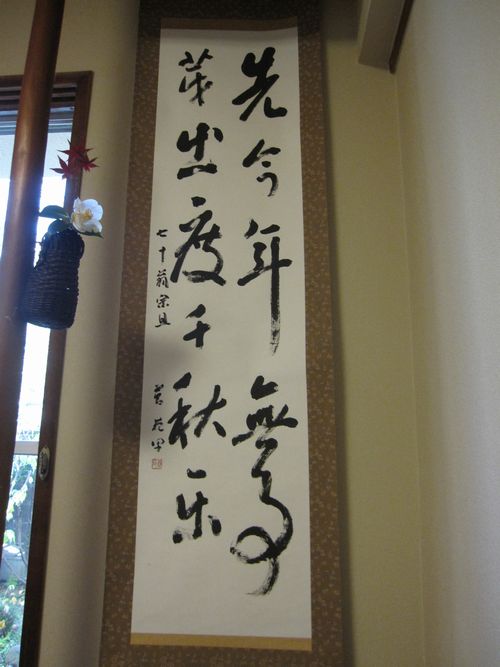 先今年無事
芽出度千秋楽
七十翁宗旦